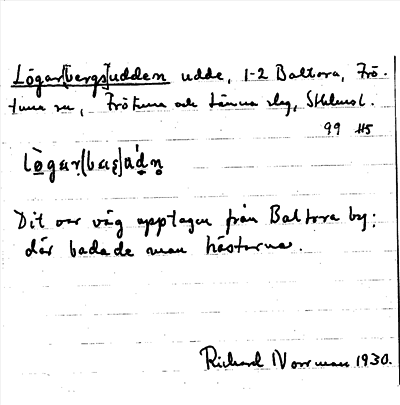 Lögar[bergs]udden udde, 1-2 Baltora, Frö-
tuna sn, Frötuna och Länna slg, Sthlms l.
99 H5
lògar[bæʂ]údn̥
Dit var väg upptagen från Baltora by;
där badade man hästarna.
Richard Norrman 1930.